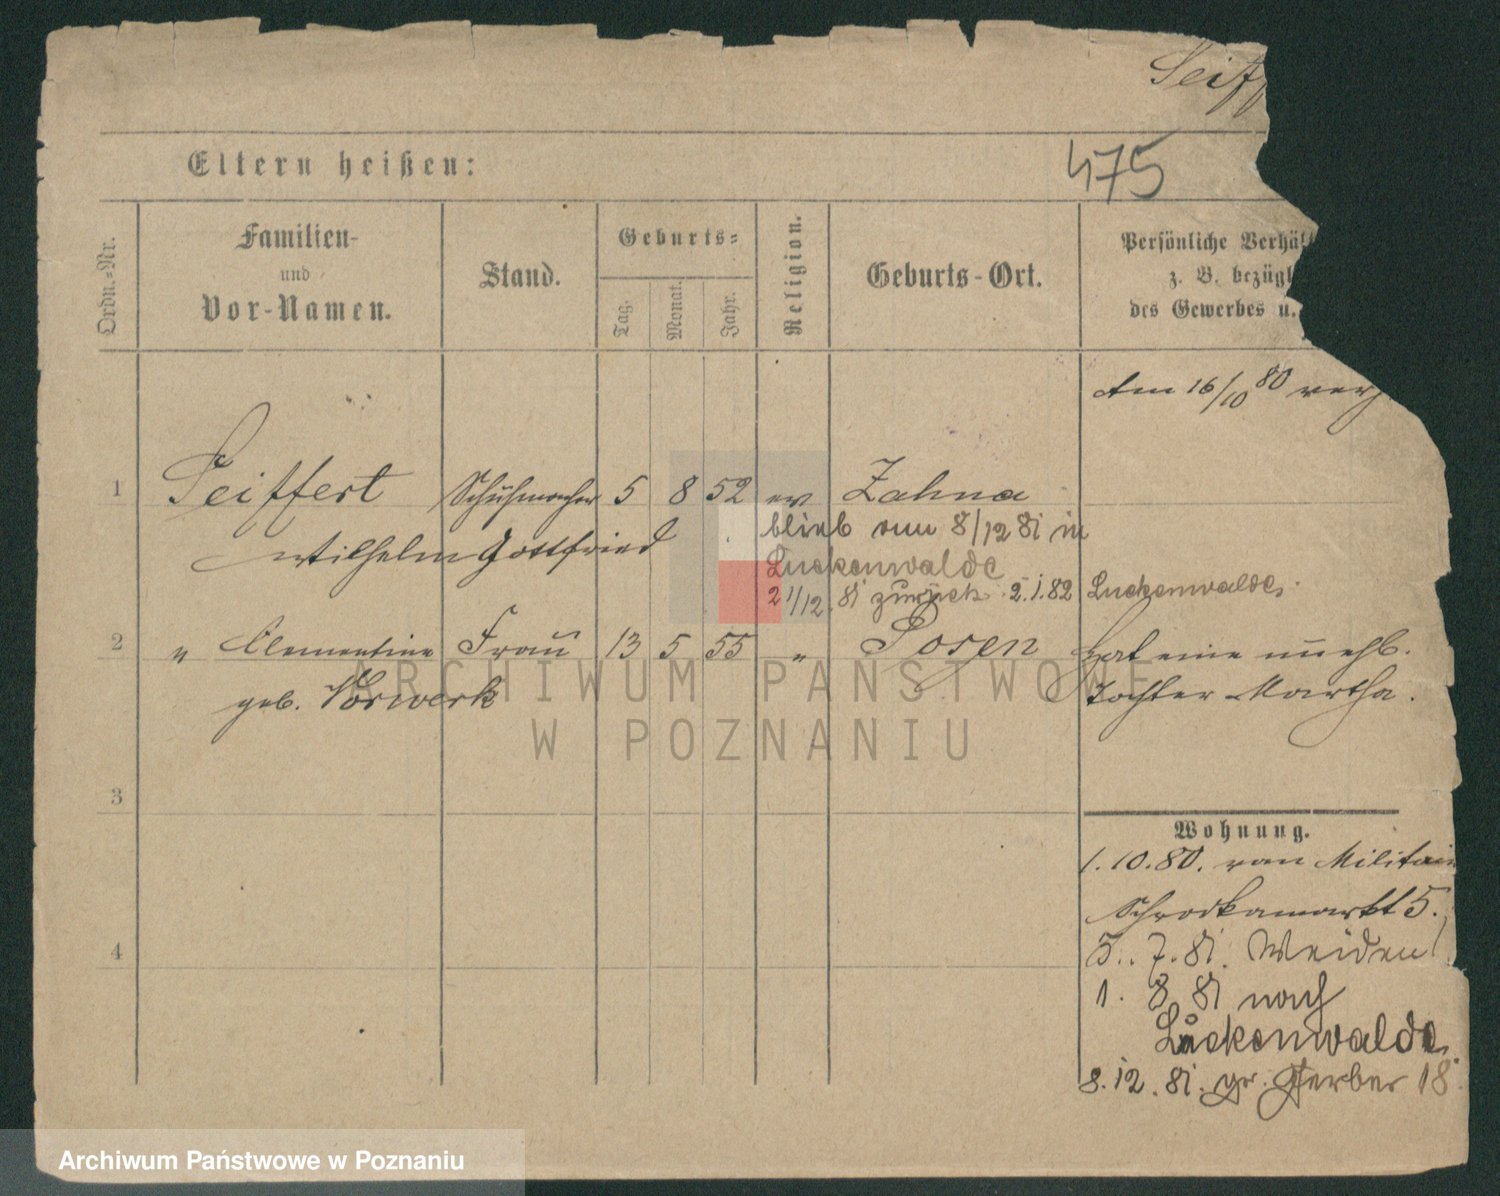 Seiff
Eltern heißen:
475
Ordn.-Nr.
Familien-
und
Vor-Namen.
Stand.
Geburts-
Tag.
Monat.
Jahr.
Religion.
Geburts-Ort.
Persönliche Verhält
z. B. bezügl
des Gewerbes u.
Am 16/10 80 verh
1 Seiffert Schuhmacher 5 8 52 ev Zahna
Wilhelm Gottfried
blieb vom 8/12 81 in
Luckenwalde
21/12. 81 zurück 2.1.82 Luckenwalde.
2 " Clementine Frau 13 5 55 " Posen
geb. Vorwerk
Hat eine unehl.
Tochter Martha.
3
4
Wohnung.
1.10.80. vom Militair
Schrodkamarkt 5.
5.. 7. 81. Weiden
1. 8 81 nach
Luckenwalde.
8. 12. 81. gr. Gerber 18
ARCHIWUM PAŃSTWOWE
W POZNANIU
Archiwum Państwowe w Poznaniu